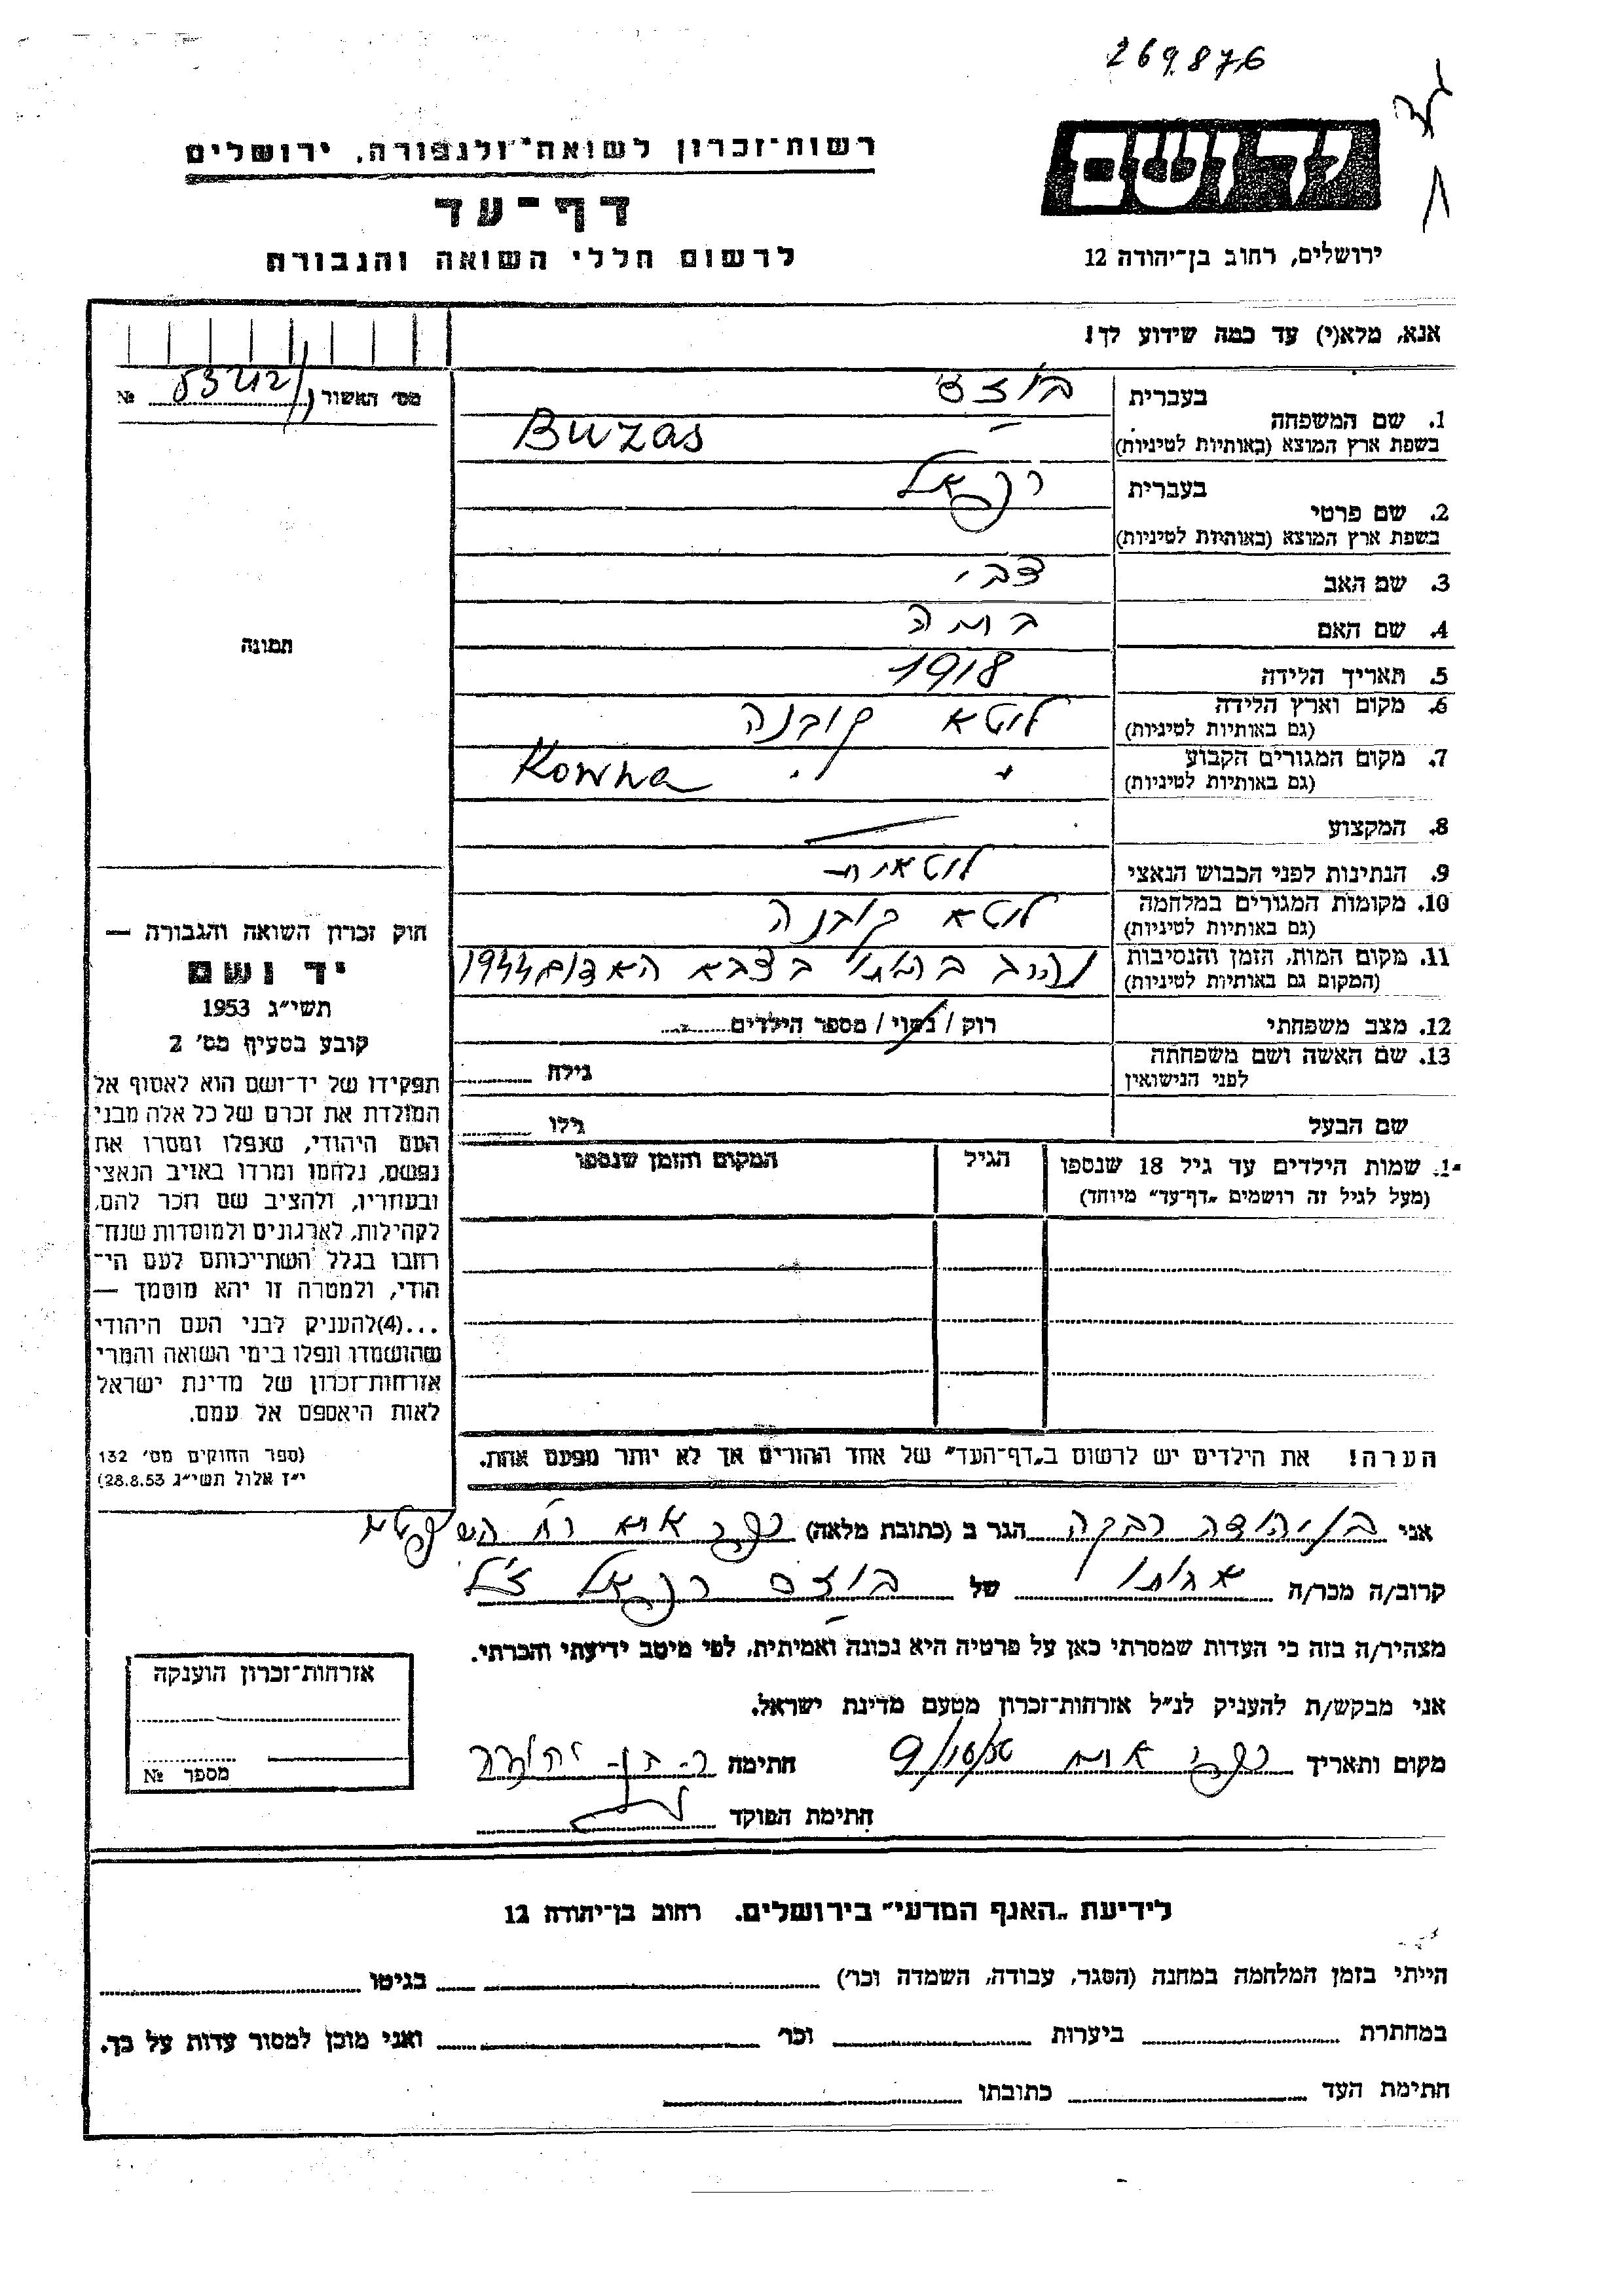 269876
יד ושם
רשות-זכרון לשואה ולגבורה, ירושלים
דף-עד
לרשום חללי השואה והגבורה
ירושלים, רחוב בן-יהודה 12
אנא, מלא(י) עד כמה שידוע לך!
מס׳ האשור № 53212
1. שם המשפחה
בעברית
בוזס
בשפת ארץ המוצא (באותיות לטיניות)
Buzas
2. שם פרטי
בעברית
רפאל
בשפת ארץ המוצא (באותיות לטיניות)
3. שם האב צבי
4. שם האם
5. תאריך הלידה 1918
6. מקום וארץ הלידה ליטא קובנה
(גם באותיות לטיניות)
7. מקום המגורים הקבוע Kowna
(גם באותיות לטיניות)
8. המקצוע
9. הנתינות לפני הכבוש הנאצי ליטאית
10. מקומות המגורים במלחמה ליטא קובנה
(גם באותיות לטיניות)
11. מקום המות, הזמן והנסיבות נהרג בהיותו בצבא האדום 1944
(המקום גם באותיות לטיניות)
12. מצב משפחתי רוק / נשוי / מספר הילדים
13. שם האשה ושם משפחתה גילה
לפני הנישואין
שם הבעל גילו
תמונה
חוק זכרון השואה והגבורה —
יד ושם
תשי״ג 1953
קובע בסעיף מס׳ 2
תפקידו של יד-ושם הוא לאסוף אל
המולדת את זכרם של כל אלה מבני
העם היהודי, שנפלו ומסרו את
נפשם, נלחמו ומרדו באויב הנאצי
ובעוזריו, ולהציב שם וזכר להם,
לקהילות, לארגונים ולמוסדות שנח-
רבו בגלל השתייכותם לעם הי-
הודי, ולמטרה זו יהא מוסמך —
...(4)להעניק לבני העם היהודי
שהושמדו ונפלו בימי השואה והמרי
אזרחות-זכרון של מדינת ישראל
לאות היאספם אל עמם.
(ספר החוקים מס׳ 132
י״ז אלול תשי״ג 28.8.53)
שמות הילדים עד גיל 18 שנספו
(מעל לגיל זה רושמים „דף-עד״ מיוחד)
הגיל
המקום והזמן שנספו
הערה! את הילדים יש לרשום ב„דף-העד״ של אחד ההורים אך לא יותר מפעם אחת.
אני בן יהודה רבקה הגר ב (כתובת מלאה)
קרוב/ה מכר/ה אחותו של בוזס רפאל ז״ל
מצהיר/ה בזה כי העדות שמסרתי כאן על פרטיה היא נכונה ואמיתית, לפי מיטב ידיעתי והכרתי.
אני מבקש/ת להעניק לנ״ל אזרחות-זכרון מטעם מדינת ישראל.
מקום ותאריך חתימה ר. בן-יהודה
חתימת הפוקד
אזרחות-זכרון הוענקה
מספר №
לידיעת „האגף המדעי״ בירושלים, רחוב בן-יהודה 12
הייתי בזמן המלחמה במחנה (הסגר, עבודה, השמדה וכו׳) בגיטו
במחתרת ביערות וכו׳ ואני מוכן למסור עדות על כך.
חתימת העד כתובתו